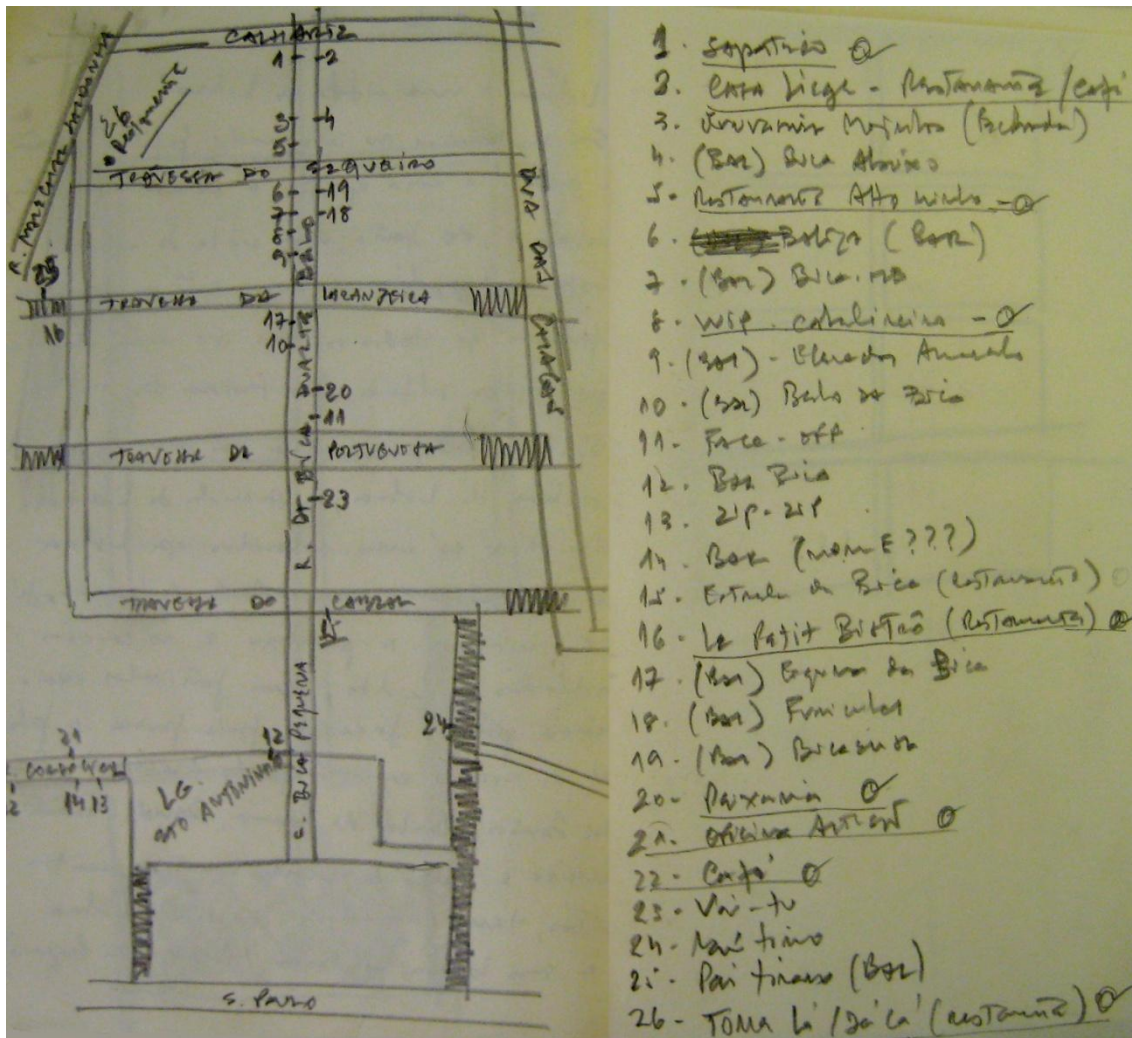 CALHARIZ
1 - 2
R. MARECHAL SALDANHA
26
Regimente
3
4
5
TRAVESSA DO SEQUEIRO
6 - 19
7 - 18
8
9
TRAVESSA DA LARANJEIRA
16
17
10
20
11
TRAVESSA DA PORTUGUESA
23
R. DA BICA DUARTE BELO
RUA DAS CHAGAS
TRAVESSA DO CABRAL
25
24
C. BICA PEQUENA
21
12
14 13
LG.
STO ANTONINHO
S. PAULO
1. Sapataria
2. CASA Liège - Restaurante / Café
3. Moinhos (Fechada)
4. (BAR) Bica Abaixo
5. Restaurante Alto Minho -
6. Baliza (BAR)
7. (Bar) Bica-me
8. WIP. cabeleireiro -
9. (BAR) - Elevador Amarelo
10. (BAR) Bela da Bica
11. Face-off
12. Bar Bica
13. ZIP-ZIP
14. Bar (NOME???)
15. Estrela da Bica (restaurante)
16. Le Petit Bistrô (Restaurante)
17. (Bar) Esquina da Bica
18. (Bar) Funicular
19. (Bar) Bicaense
20 - Peixaria
21. Oficina
22 - Café
23 - Vai-tu
24 - Marítimo
25 - Pai tirano (BAR)
26 - TOMA Lá / Dá cá (restaurante)